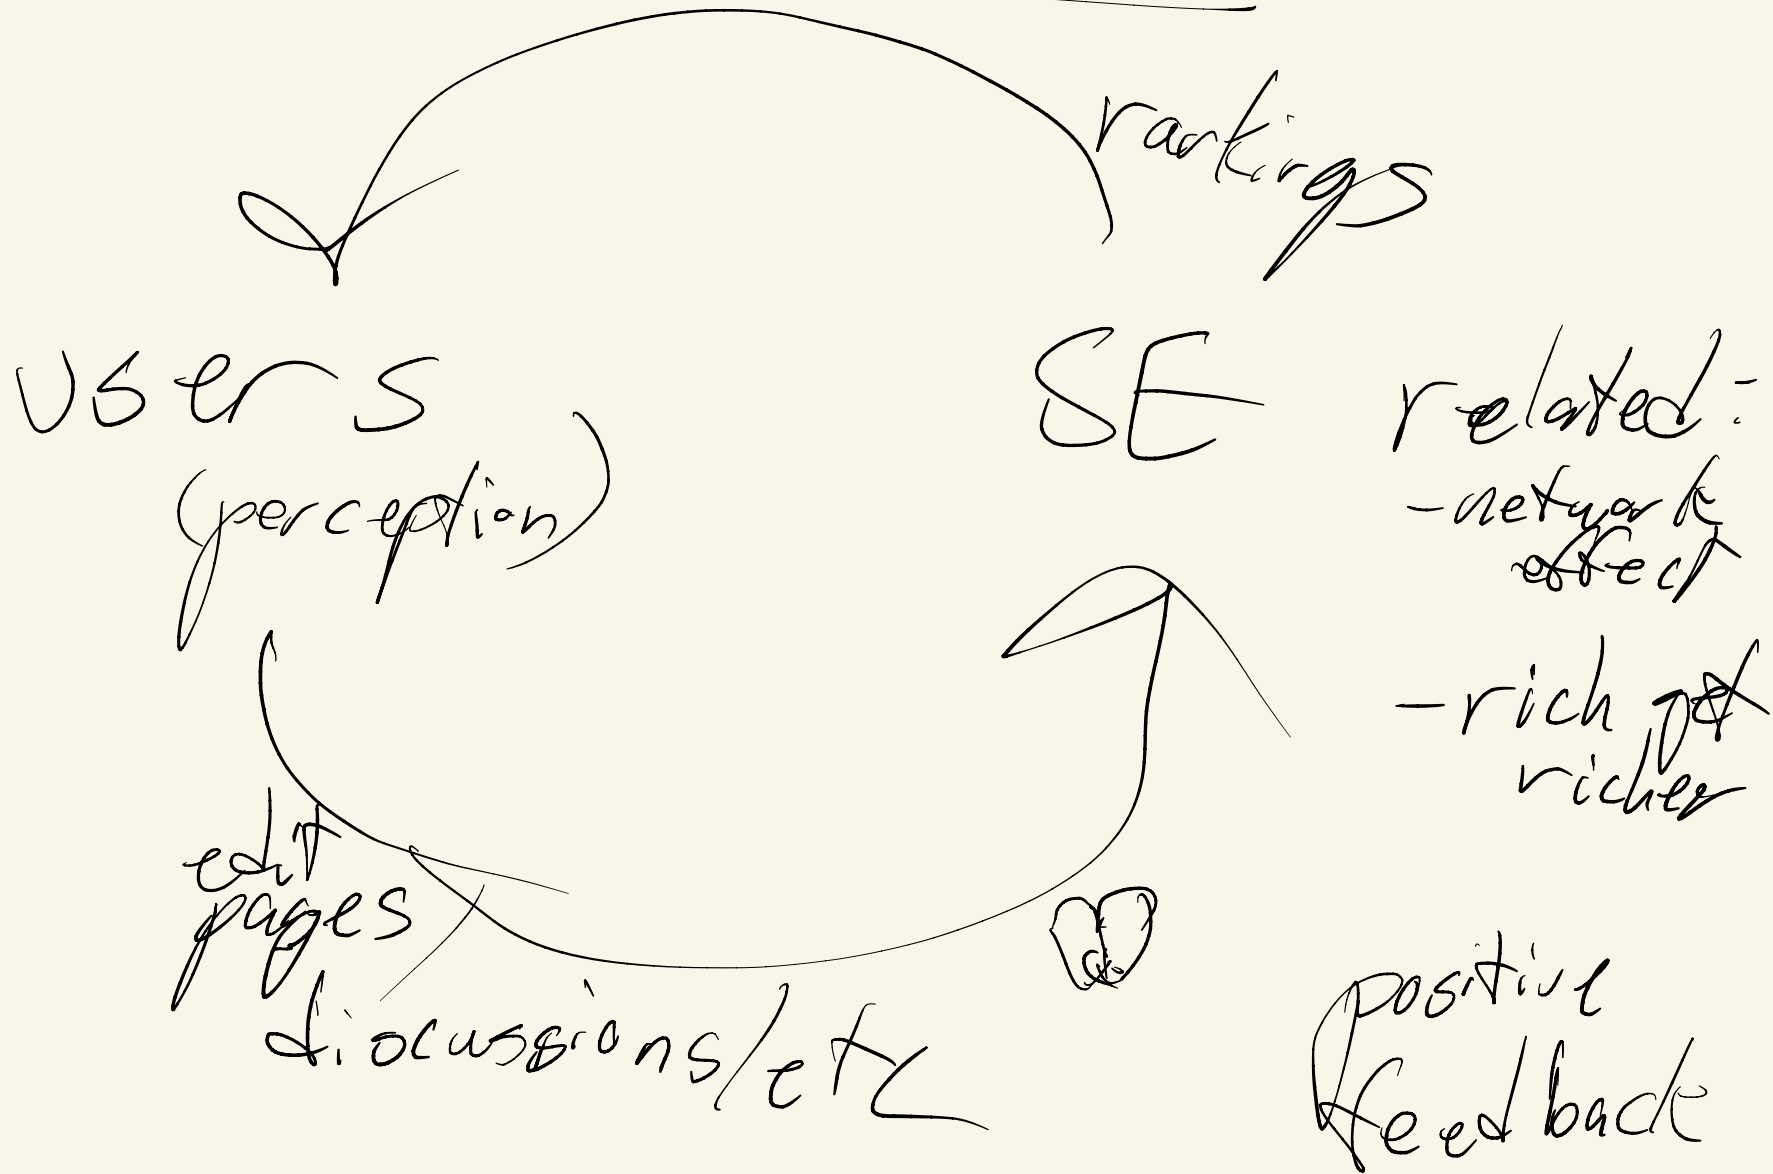 rankings
users
(perception)
SE
related:
-network
effect
-rich get
richer
edit
pages
discussions/etc
positive
feedback